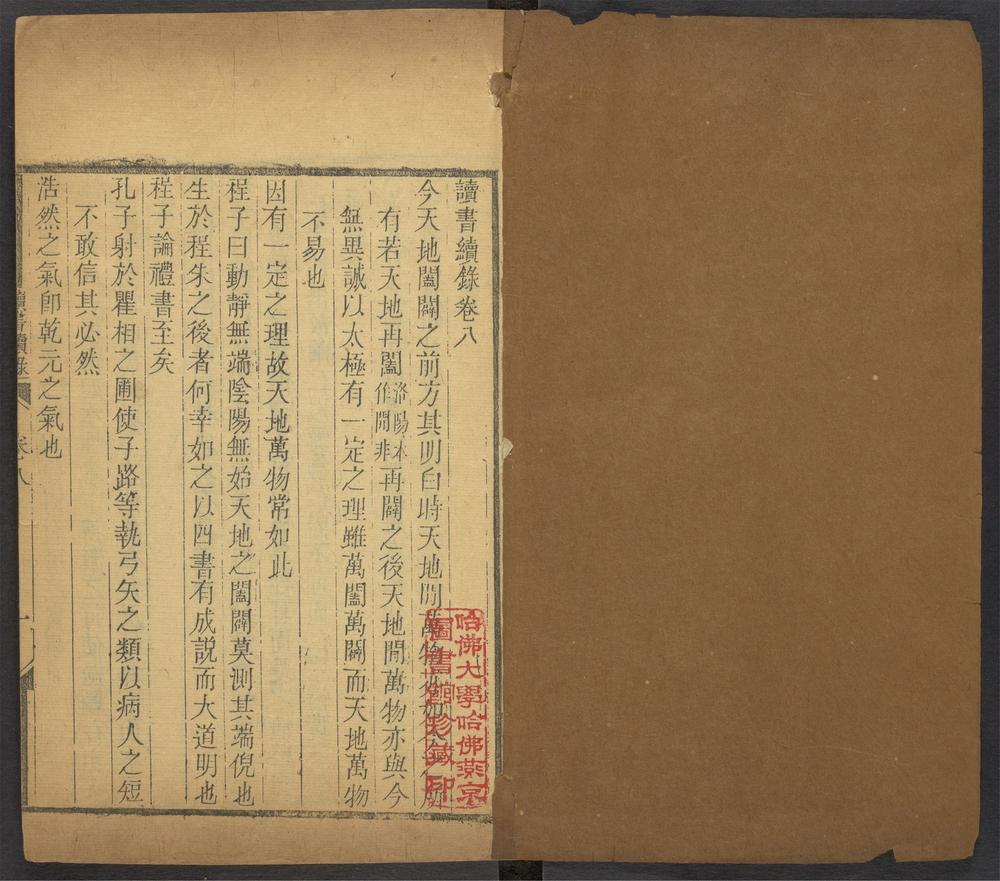 讀書續錄卷八
今天地闔闢之前方其明白時天地間萬物亦如今之所
有若天地再闔洛陽本作開非再闢之後天地間萬物亦與今
無異誠以太極有一定之理雖萬闔萬闢而天地萬物
不易也
因有一定之理故天地萬物常如此
程子曰動靜無端陰陽無始天地之闔闢莫測其端倪也
生於程朱之後者何幸如之以四書有成説而大道明也
程子論禮書至矣
孔子射於瞿相之圃使子路等執弓矢之類以病人之短
不敢信其必然
浩然之氣卽乾元之氣也
讀書續錄
卷八
一
哈佛大學哈佛燕京
圖書館珍藏印